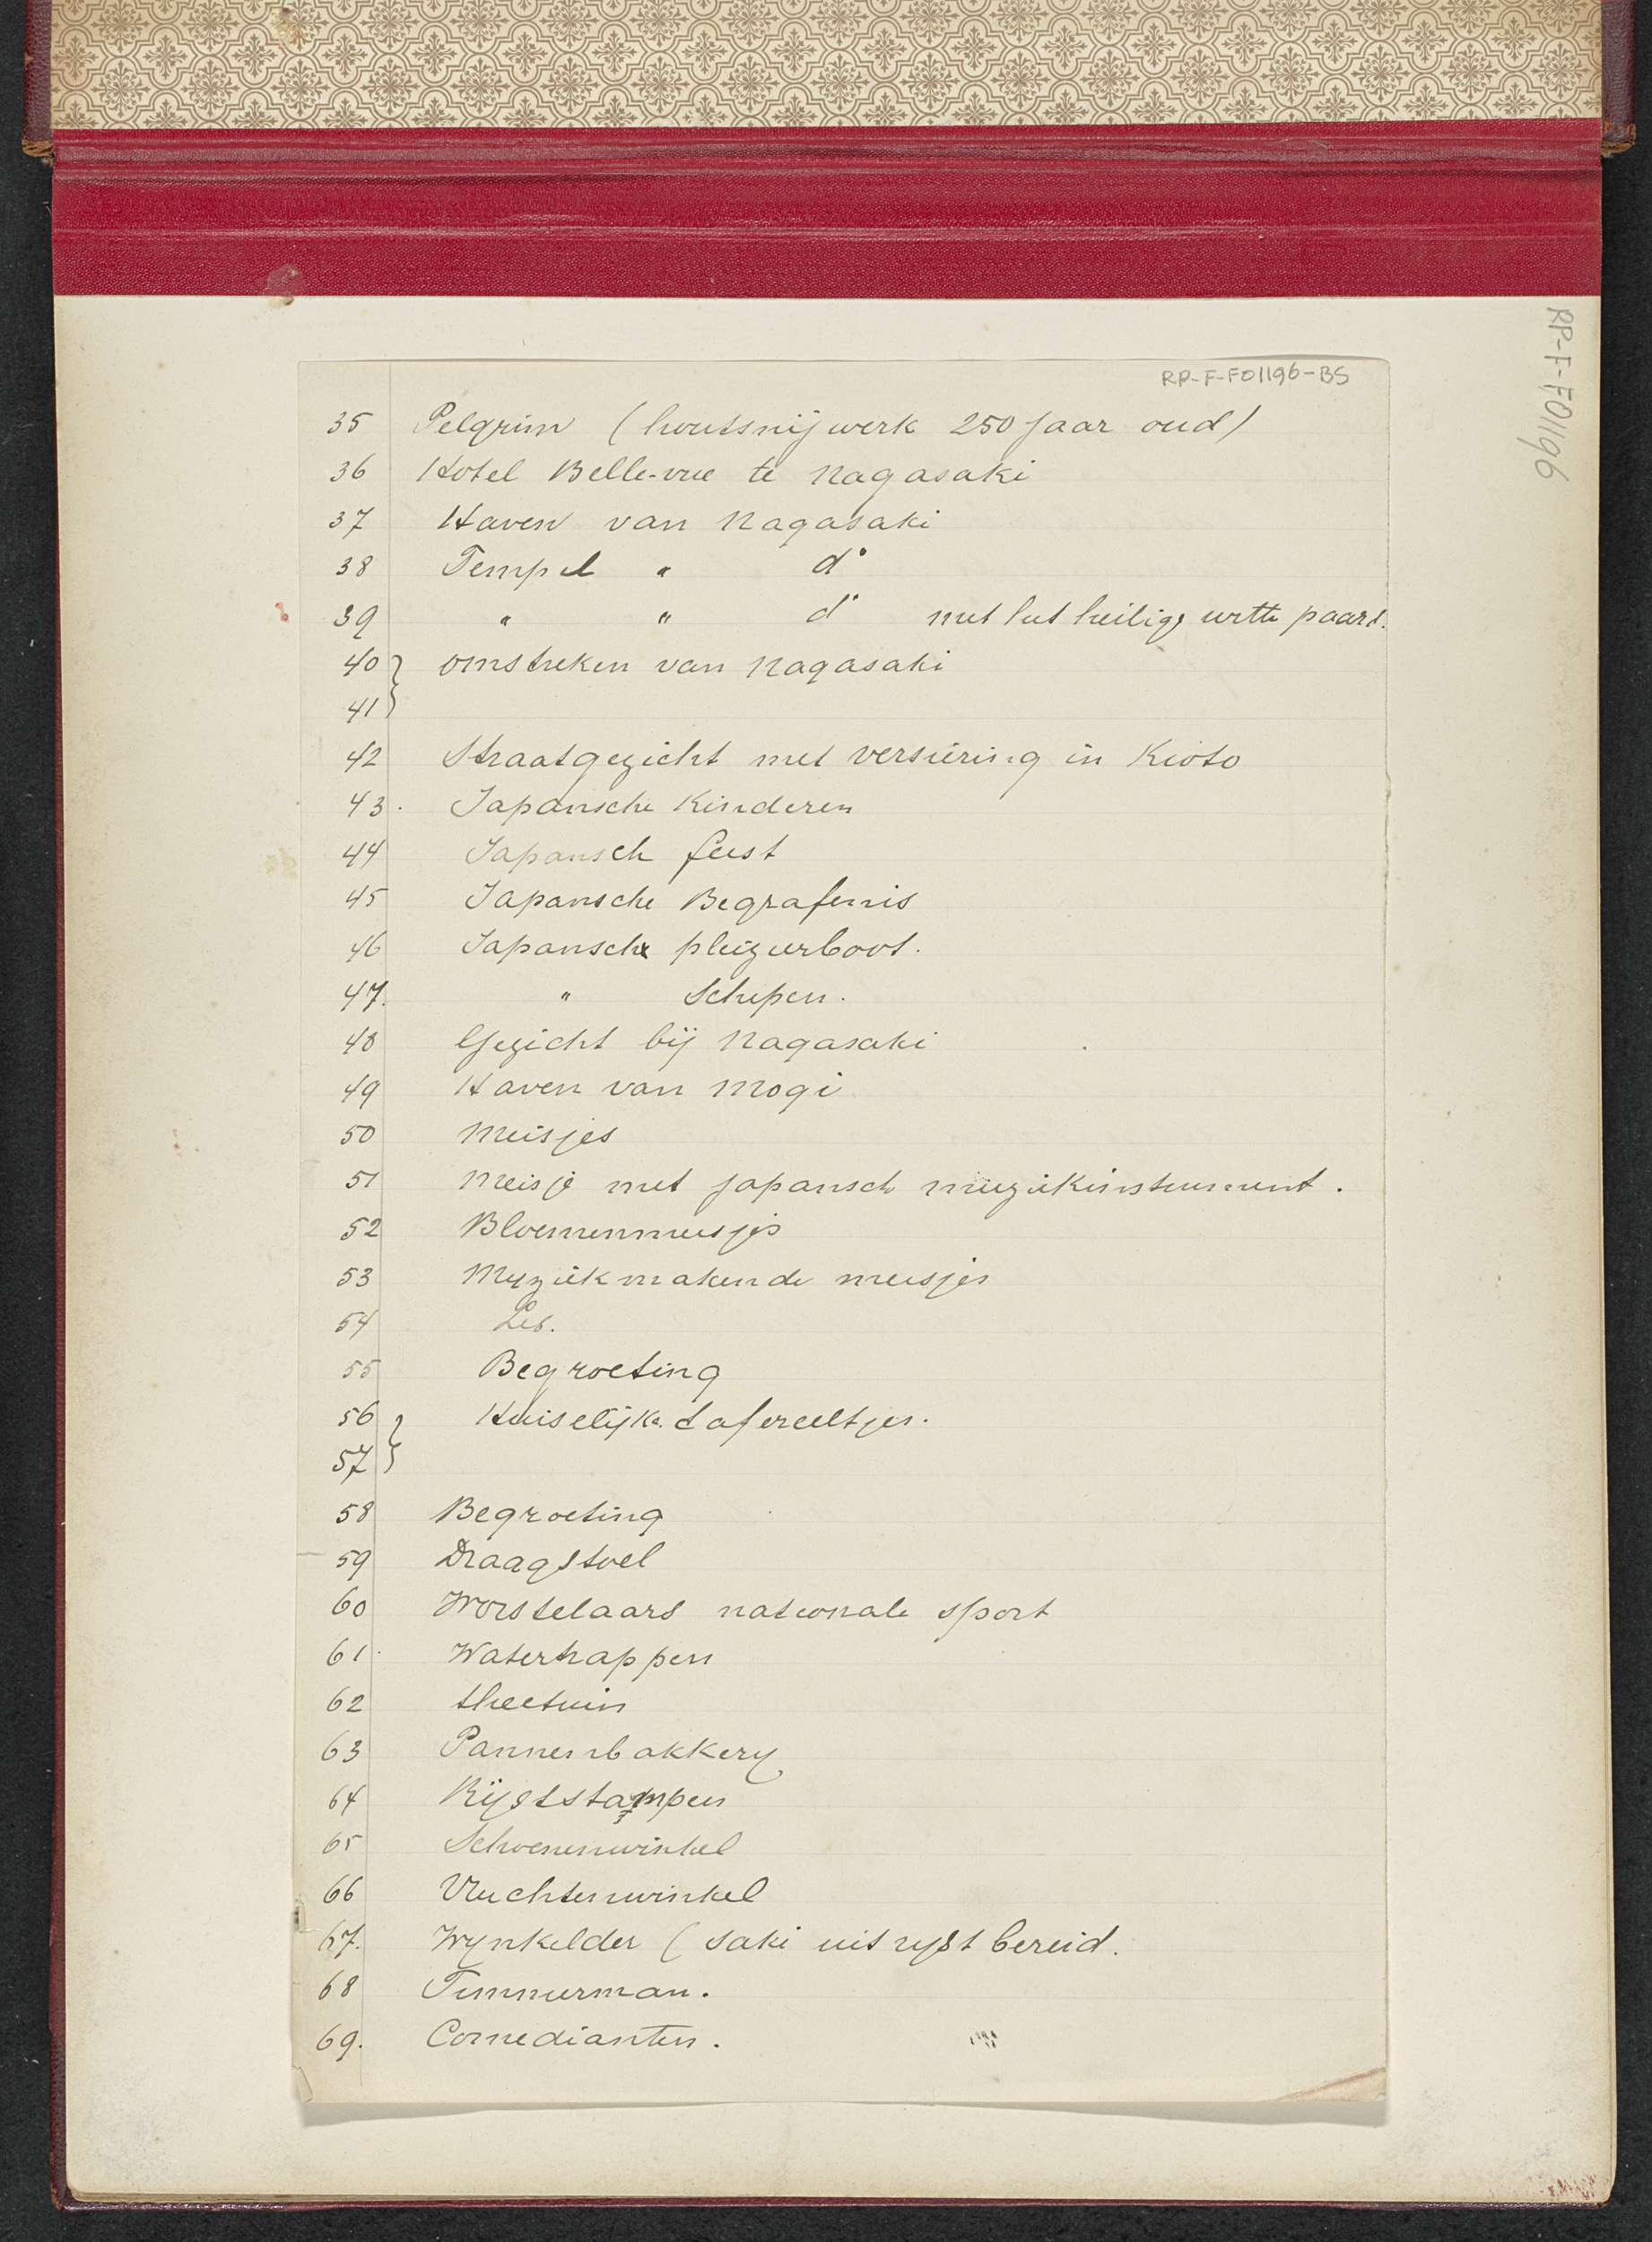 RP-F-F01196-BS
RP-F-F01196
35 Pelgrim (houtsnijwerk 250 jaar oud)
36 Hotel Belle-vue te Nagasaki
37 Haven van Nagasaki
38 Tempel " d°
39 " " d° met het heilige witte paard.
40 } omstreken van Nagasaki
41 }
42 Straatgezicht met versiering in Kioto
43. Japansche Kinderen
44 Japansch feest
45 Japansche Begrafenis
46 Japansche pleizierboot.
47. " Schepen.
48 Gezicht bij Nagasaki
49 Haven van Mogi
50 Meisjes
51 Meisje met japansch muziekinstrument.
52 Bloemenmeisjes
53 Muziekmakende meisjes
54 Les.
55 Begroeting
56 } Huiselijke tafereeltjes.
57 }
58 Begroeting
59 Draagstoel
60 Worstelaars nationale sport
61. Watertrappen
62 theetuin
63 Pannenbakkery
64 Rijststampen
65 Schoenenwinkel
66 Vruchtenwinkel
67. Wynkelder (saki uit ryst bereid.
68 Timmerman.
69. Comedianten.